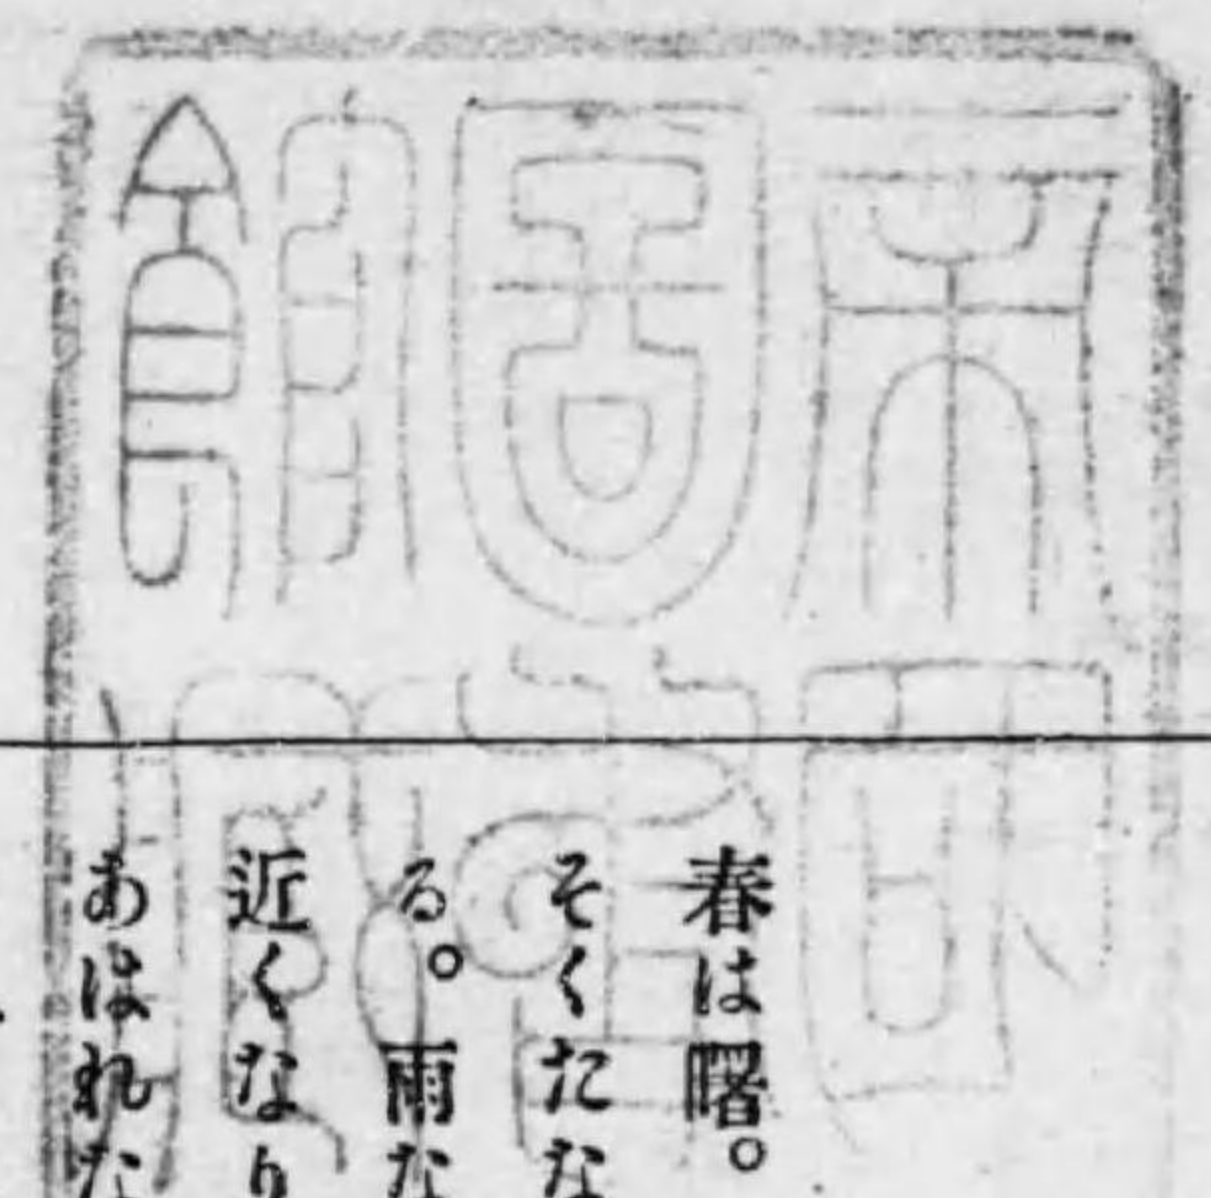 帝國
圖書
館藏
春は曙。
そくたな
る。雨な
近くなり
あはれな